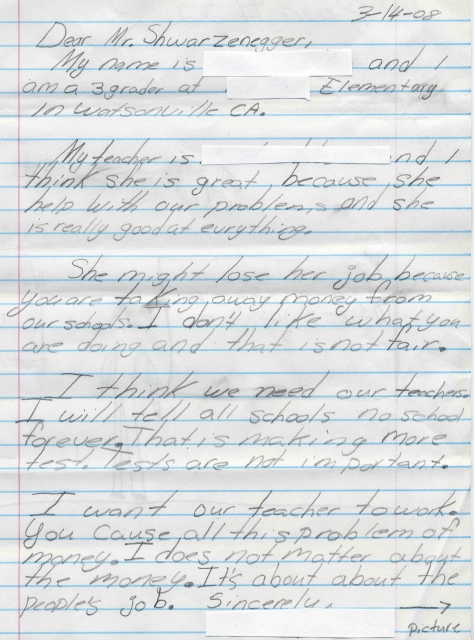 3-14-08
Dear Mr. Shwarzenegger,
My name is and I
am a 3 grader at Elementary
in Watsonville CA.
My teacher is nd I
think she is great, because she
help with our problems and she
is really good at eurything.
She might lose her job because
you are taking away money from
our schools. I don't like what you
are doing and that is not fair.
I think we need our teachers.
I will tell all schools no school
forever. That is making more
test. Tests are not important.
I want our teacher to work.
You cause all this problem of
money. I does not matter about
the money. It's about about the
people's job. Sincerely,
→
picture